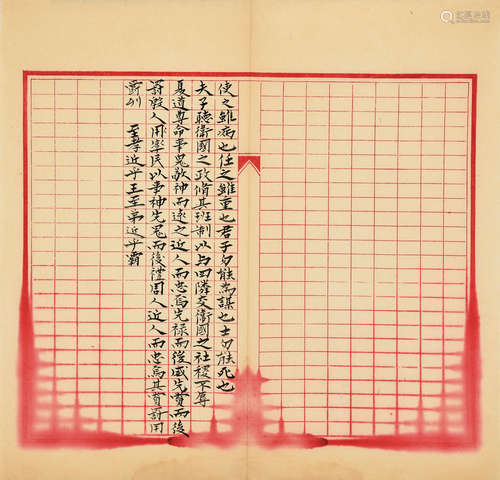 使之雖病也任之雖重也君子勿能為謀也士勿能死也
夫子聽衛國之政脩其班制以与四隣交衛國之社稷不辱
夏道尊命事鬼敬神而遠之近人而忠焉先祿而後威先賞而後
罰殷人率民以事神先鬼而後禮周人近人而忠焉其賞罰用
爵列 至孝近乎王至弟近乎霸